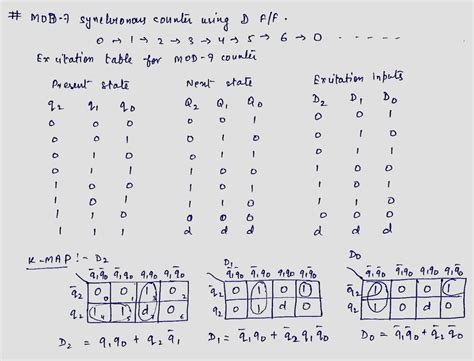 # MOD-7 synchronous counter using D F/F.
0 → 1 → 2 → 3 → 4 → 5 → 6 → 0 - - - - -
Excitation table for MOD-7 counter
Present state Next state Excitation inputs
q2 q1 q0 Q2 Q1 Q0 D2 D1 D0
0 0 0 0 0 1 0 0 1
0 0 1 0 1 0 0 1 0
0 1 0 0 1 1 0 1 1
0 1 1 1 0 0 1 0 0
1 0 0 1 0 1 1 0 1
1 0 1 1 1 0 1 1 0
1 1 0 0 0 0 0 0 0
1 1 1 d d d d d d
K-MAP :- D2 D1 D0
q̄1q̄0 q̄1q0 q1q0 q1q̄0 q̄1q̄0 q̄1q0 q1q0 q1q̄0 q̄1q̄0 q̄1q0 q1q0 q1q̄0
q̄2 0 0 1 0 q̄2 0 1 0 1 q̄2 1 0 0 1
q2 1 1 d 0 q2 0 1 d 0 q2 1 0 d 0
D2 = q1q0 + q2q̄1 D1 = q̄1q0 + q̄2q1q̄0 D0 = q̄1q̄0 + q̄2q̄0